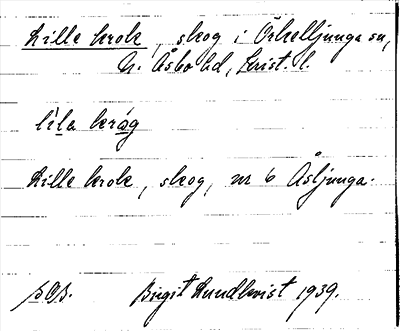 Lille krok, skog i Örkelljunga sn,
N. Åsbo hd, Krist. l.
lìla kråg
Lille krok, skog, nr 6 Åsljunga.
Birgit Lundkvist 1939.